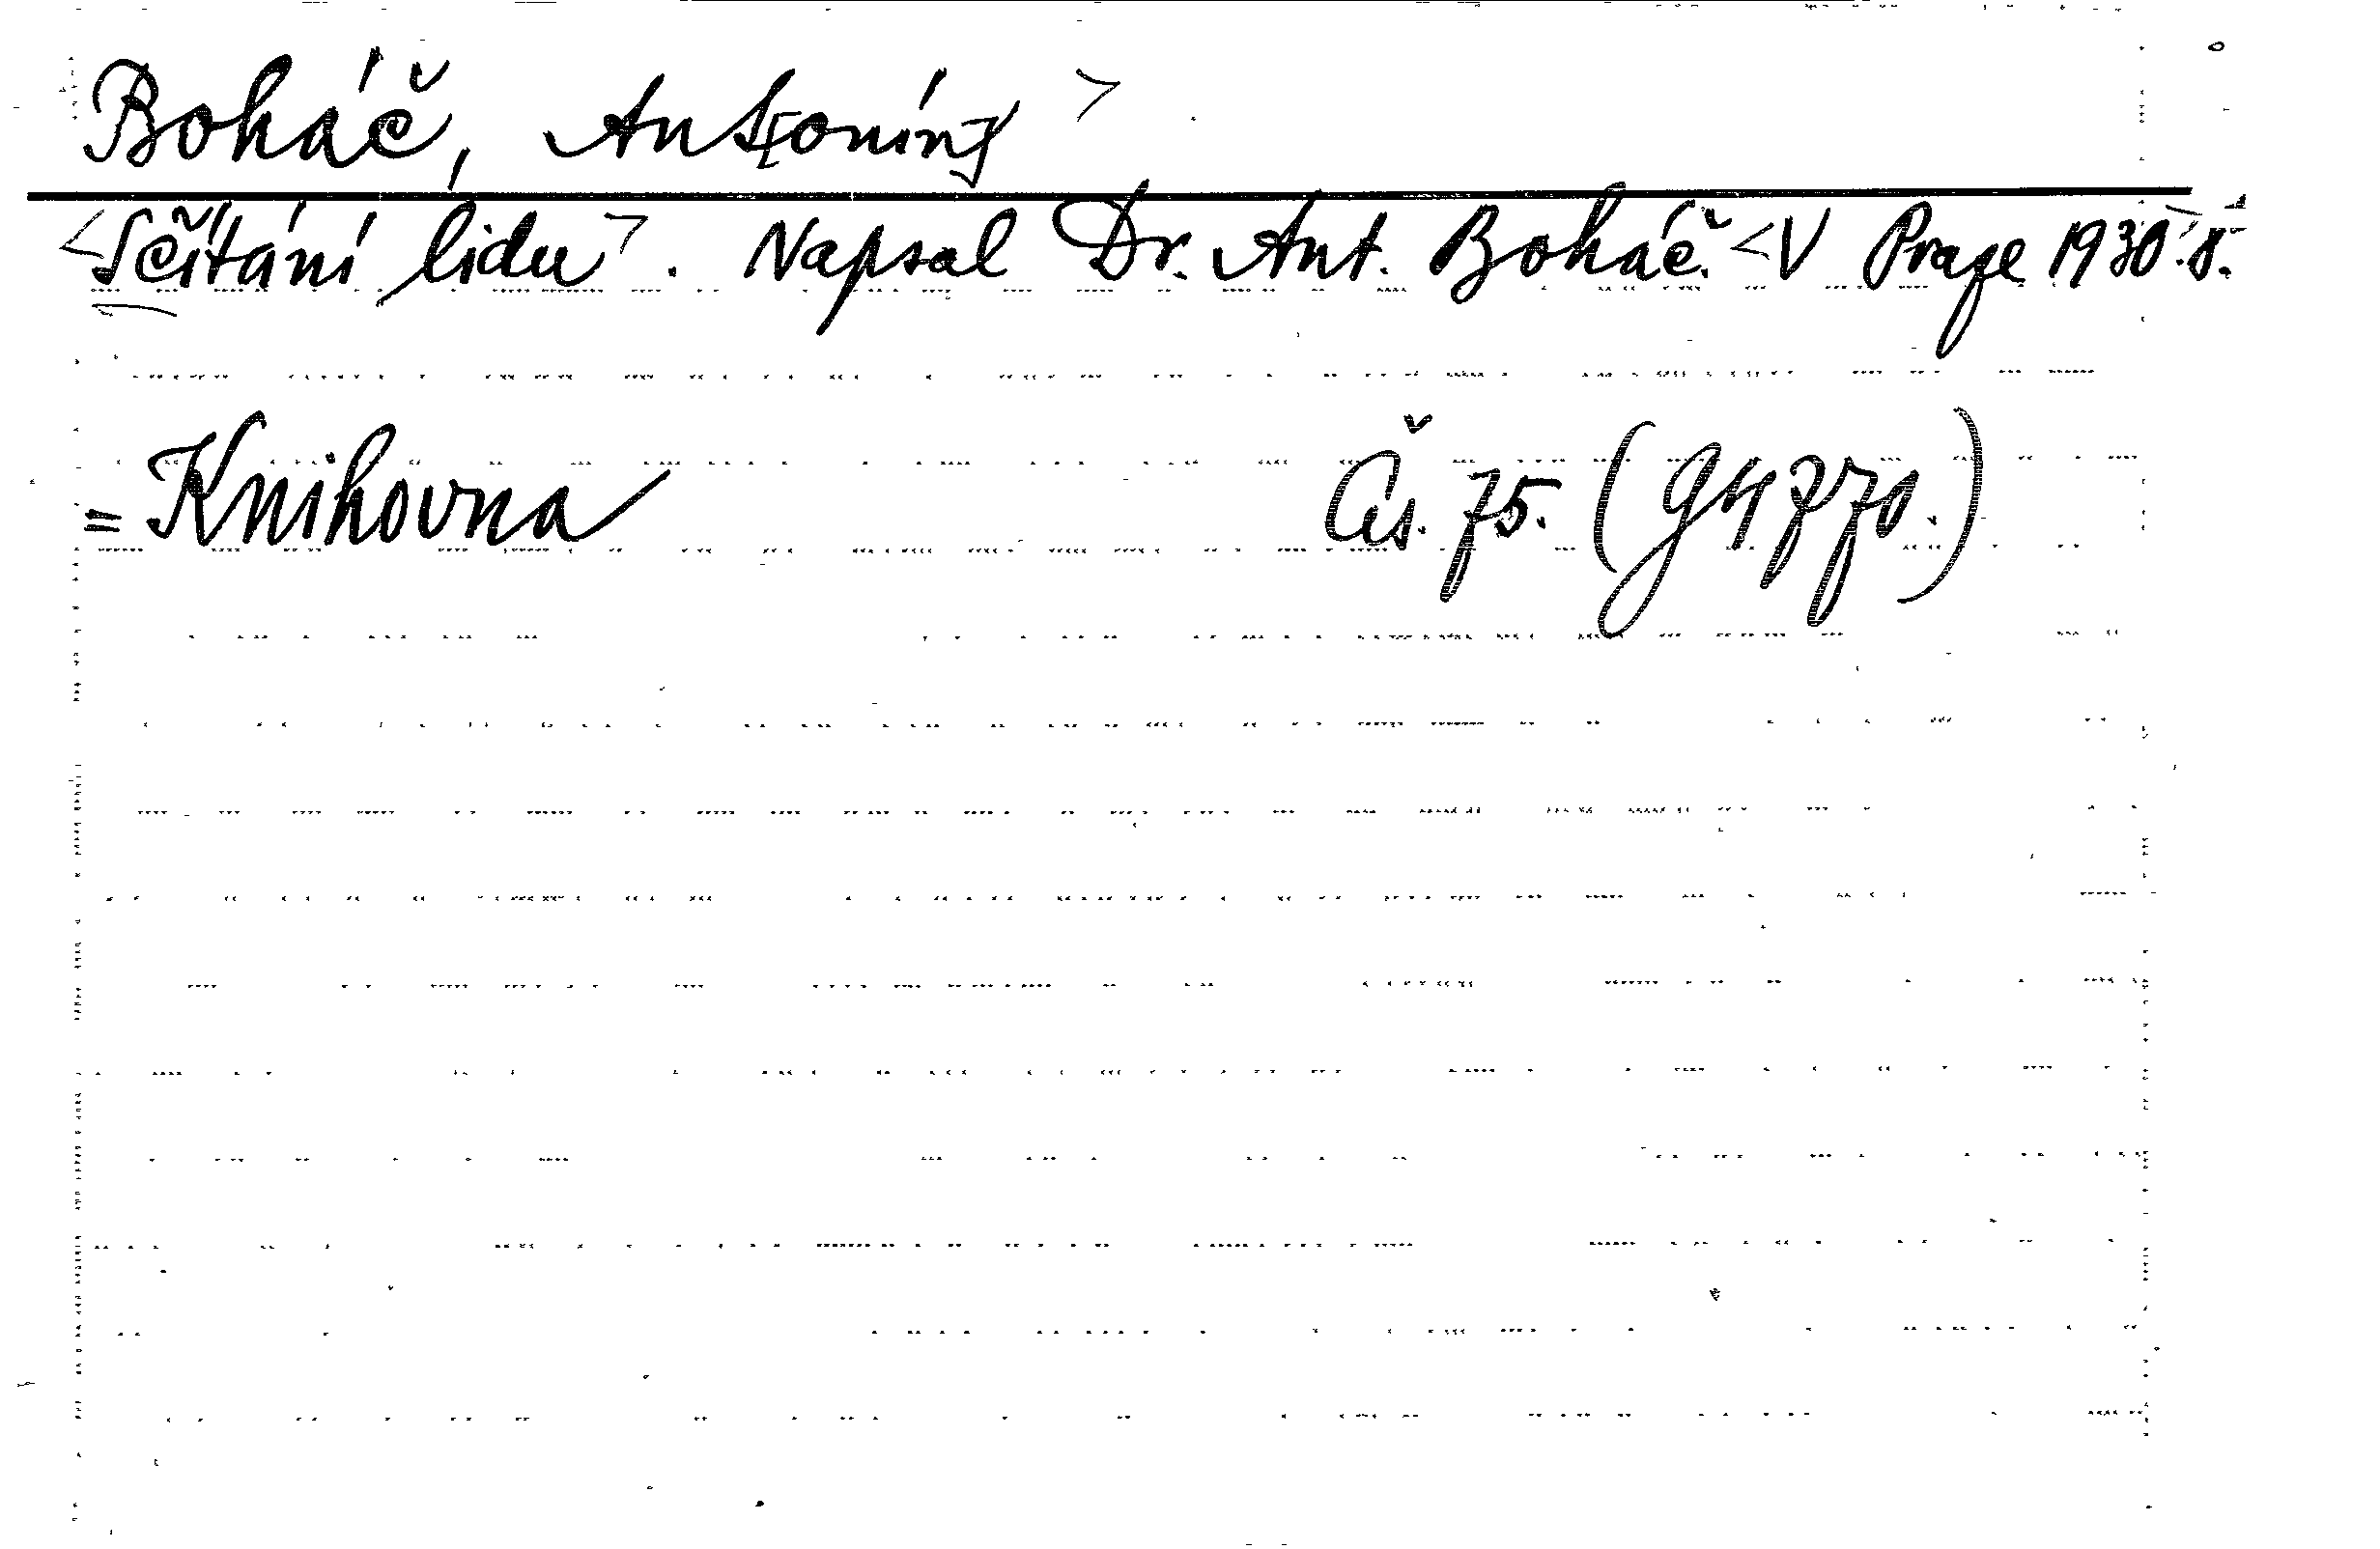 Boháč, Ant[onín] >
<Sčítání lidu>. Napsal Dr. Ant. Boháč. <V Praze 1930. 8.
= Knihovna Čís. 75. (